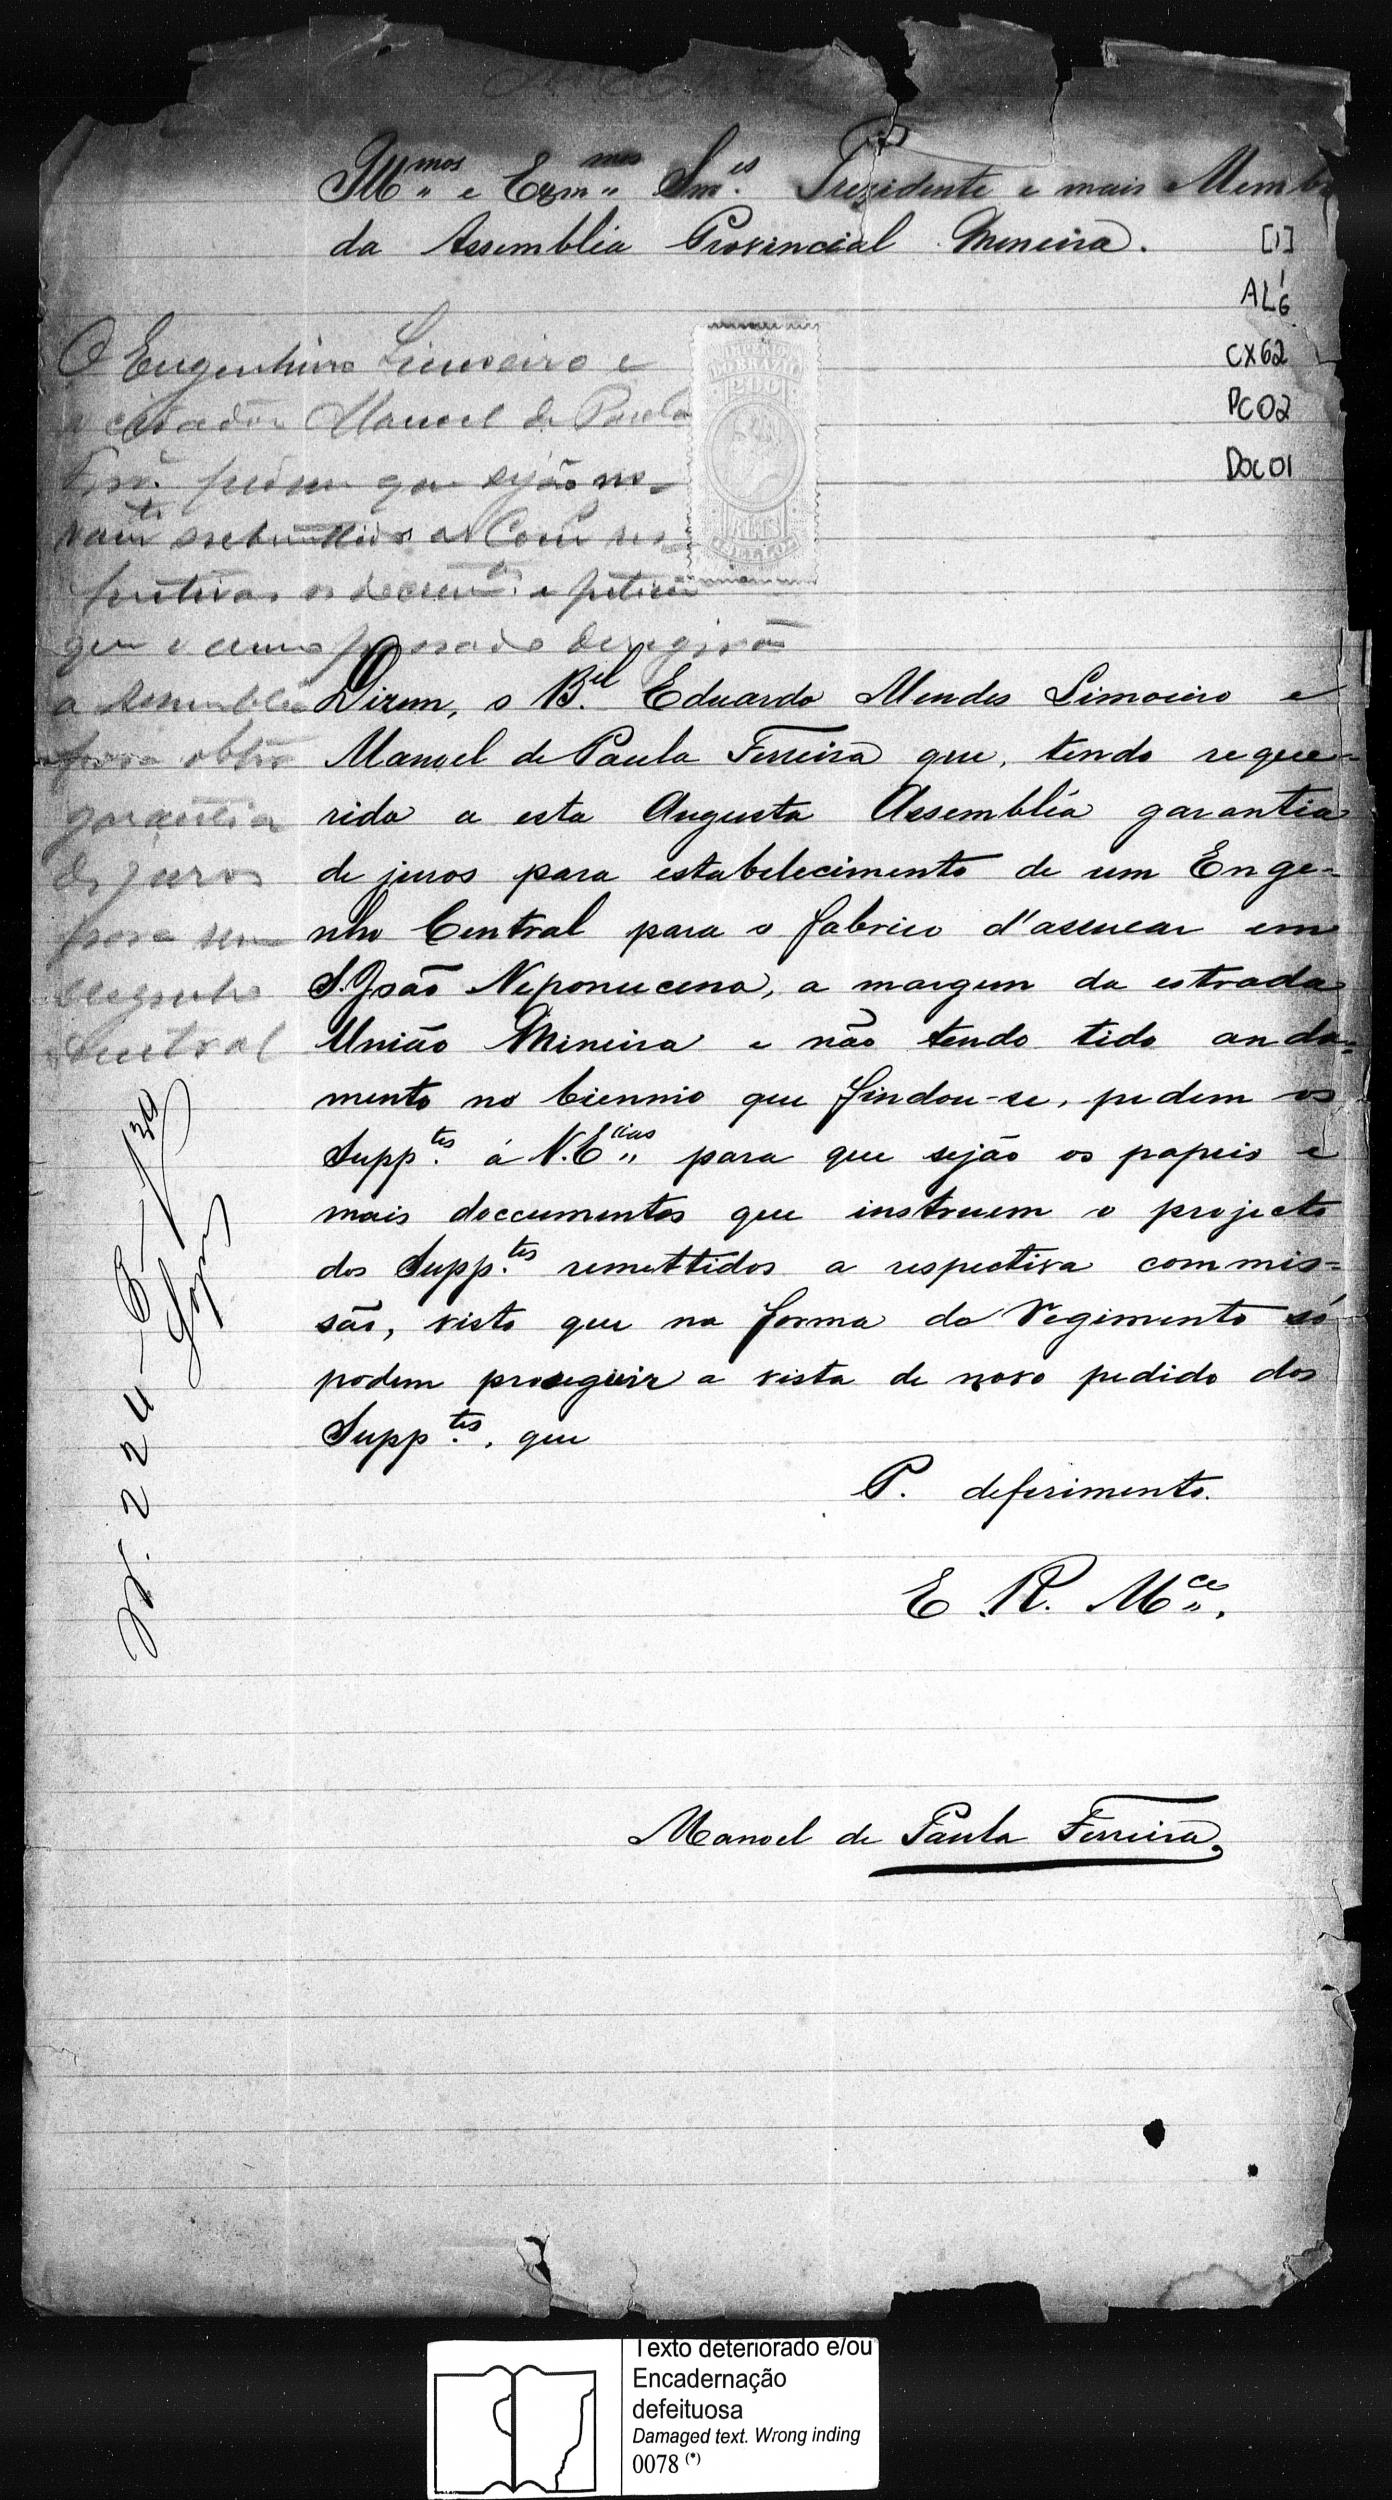 Ill.mos e Exm.mos Snr.es Prezidente e mais Memb
da Assembléa Provincial Mineira.
[1]
AL6
CX62
PC02
DOC01
O Engenheiro Limoeiro e
o cidadão Manoel de Paula
pedem que sejão no-
vam.te submettidos as Com res-
pectivas os docum.tos e petição
que o anno passado dirigirão
a Assembléa
para obter
garantia
de juros
para um
engenho
central
IMPERIO
DO BRAZIL
200
REIS
SELLO
Dizem, o B.el Eduardo Mendes Limoeiro e
Manoel de Paula Ferreira que, tendo reque-
rido a esta Augusta Assembléa garantia
de juros para estabelecimento de um Enge-
nho Central para o fabrico d'assucar em
S. João Neponuceno, a margem da estrada
União Mineira e não tendo tido anda-
mento no biennio que findou-se, pedem os
Supp.tes á V.Ecias para que sejão os papeis e
mais doccumentos que instruem o projecto
dos Supp.tes remettidos a respectiva commis-
são, visto que na forma do Regimento só
podem proseguir a vista de novo pedido dos
Supp.tes, que
P. deferimento.
E. R. M.ce
Manoel de Paula Ferreira
N. 224
Texto deteriorado e/ou
Encadernação
defeituosa
Damaged text. Wrong inding
0078 (*)